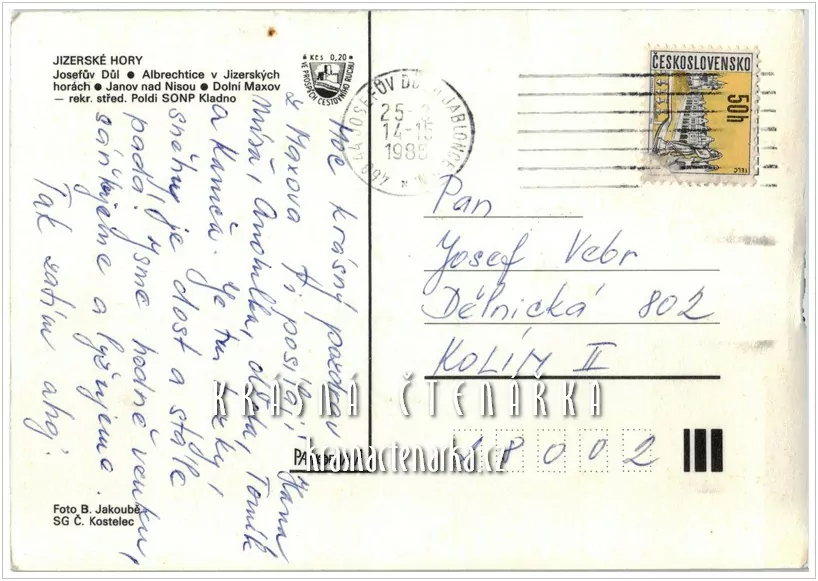 JIZERSKÉ HORY
Josefův Důl ● Albrechtice v Jizerských
horách ● Janov nad Nisou ● Dolní Maxov
— rekr. střed. Poldi SONP Kladno
Kčs 0,20
VE PROSPĚCH CESTOVNÍHO RUCHU
468 44 JOSEFŮV DŮL U JABLONCE
14-15
1985
ČESKOSLOVENSKO
50h
TELČ
Moc krásný pozdrav
z Maxova Ti posílají Hana
Míša, 
a Kamča. Je tu hezky,
sněhu je dost a stále
padá. Jsme hodně venku,
sáňkujeme a lyžujeme.
Tak zatím ahoj.
Pan
Josef Vebr
Dělnická 802
KOLÍN II
28002
KRÁSNÁ ČTENÁŘKA
krasnactenarka.cz
Foto B. Jakoubě
SG Č. Kostelec